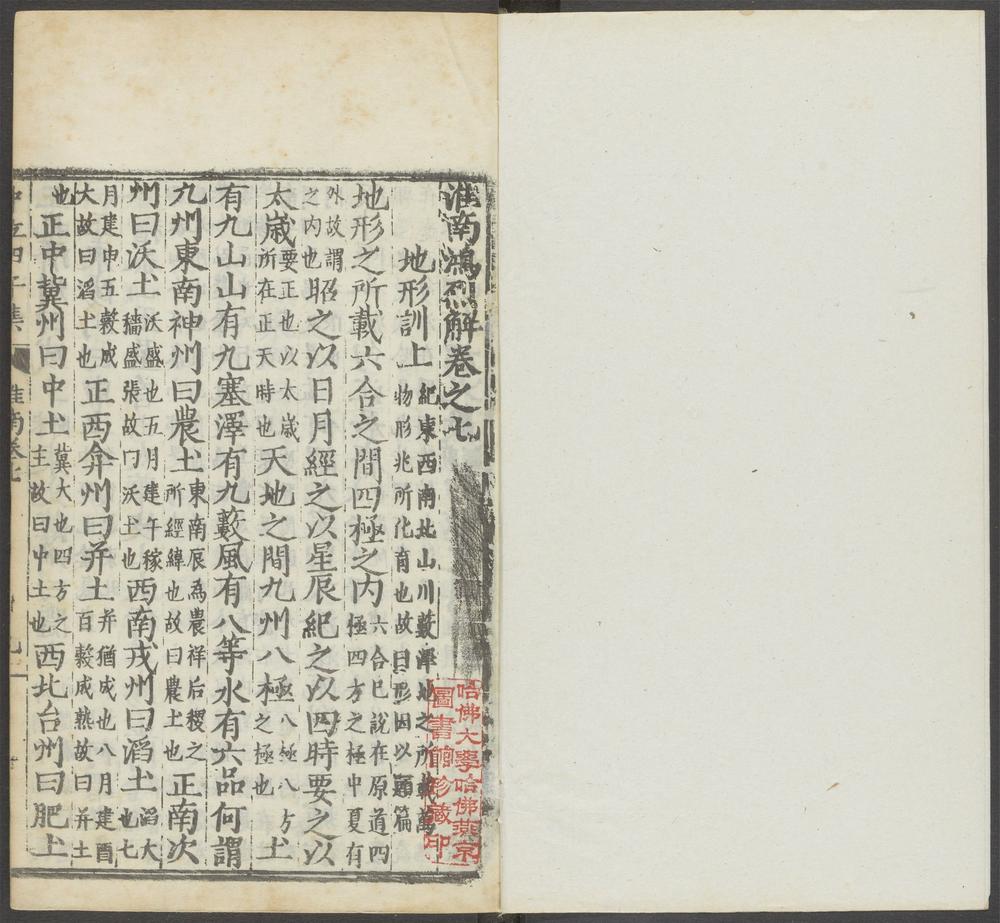 淮南鴻烈解卷之七
地形訓上 紀東西南北山川藪澤地之所載萬
物形兆所化育也故曰形因以題篇
地形之所載六合之間四極之内 六合已說在原道四
極四方之極中夏有
外故謂
之内也 昭之以日月經之以星辰紀之以四時要之以
太歲 要正也以太歲
所在正天時也 天地之間九州八極 八極八方
之極也 土
有九山山有九塞澤有九藪風有八等水有六品何謂
九州東南神州曰農土 東南辰為農祥后稷之
所經緯也故曰農土也 正南次
州曰沃土 沃盛也五月建午稼
穡盛張故曰沃土也 西南戎州曰滔土 滔大
也七
月建申五穀成
大故曰滔土也 正西弇州曰并土 并猶成也八月建酉
百穀成熟故曰并土
也 正中冀州曰中土 冀大也四方之
主故曰中土也 西北台州曰肥土
中立四子集
淮南卷七
哈佛大學哈佛燕京
圖書館珍藏印